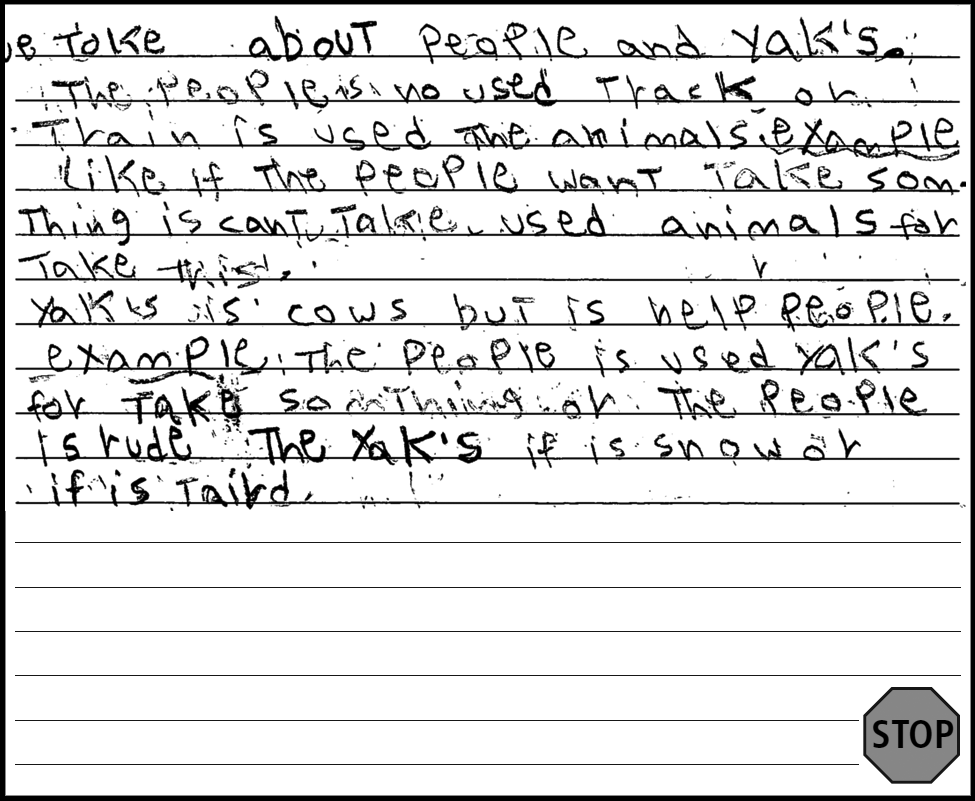 ue Take about PeoPle and Yak's.
The PeoPle is no used Track or
Train is used The animals. example
Like if The PeoPle want Take som-
Thing is can't Take. used animals for
Take this.
Yak's is cows but is help PeoPle.
example: The PeoPle is used Yak's
for Take somThing or The PeoPle
is rude The Yak's if is snow or
if is Taird.
STOP